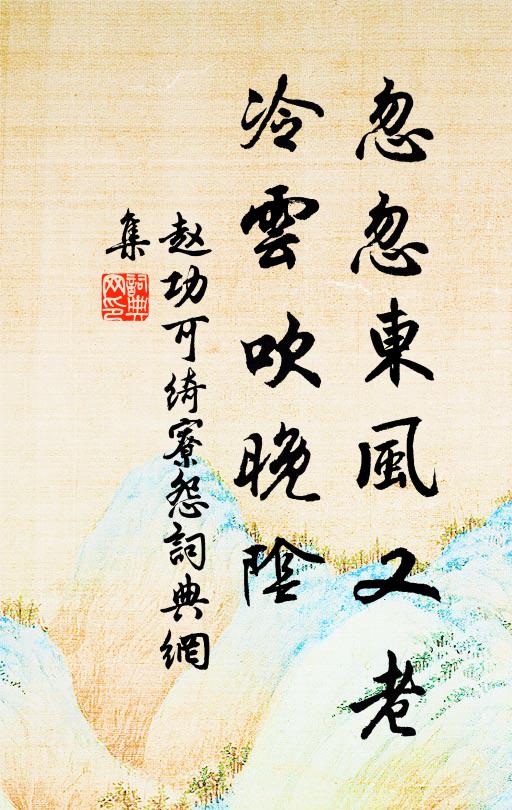 忽忽東風又老
冷雲吹晚陰
赵功可綺寮怨詞典網
集
詞典網印